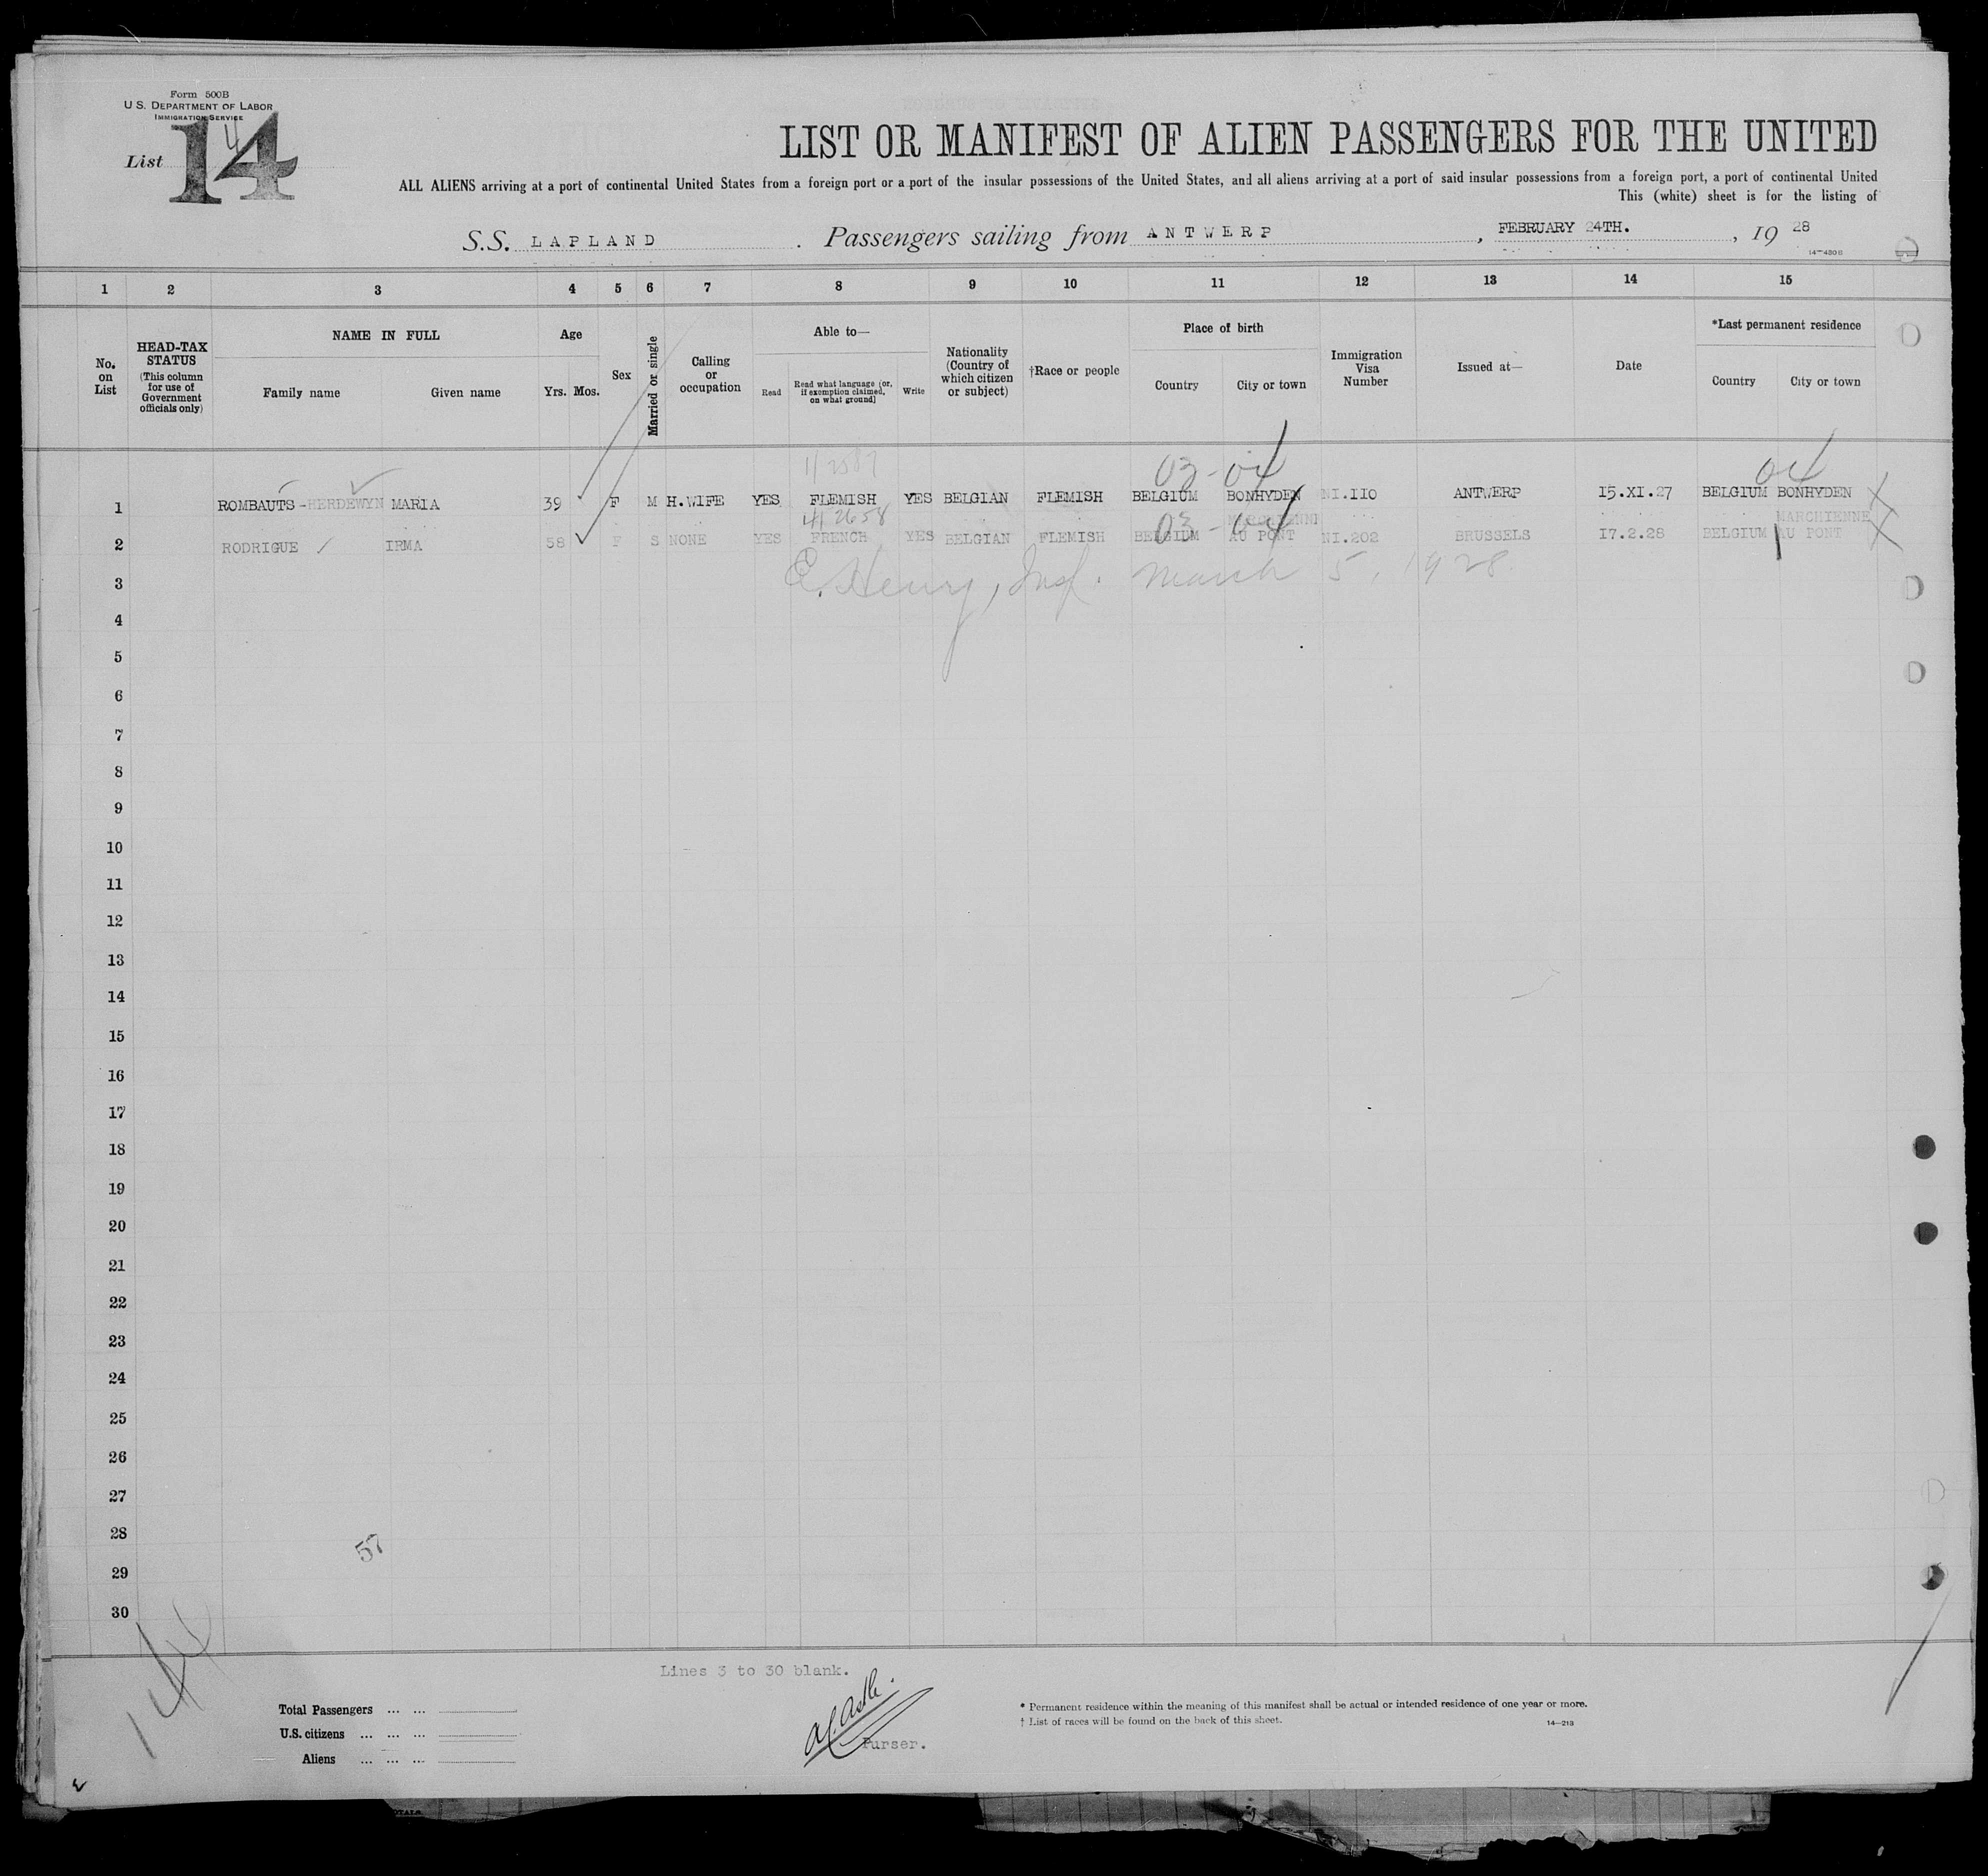 Form 500B
U.S. DEPARTMENT OF LABOR
IMMIGRATION SERVICE
List 14
4
LIST OR MANIFEST OF ALIEN PASSENGERS FOR THE UNITED
ALL ALIENS arriving at a port of continental United States from a foreign port or a port of the insular possessions of the United States, and all aliens arriving at a port of said insular possessions from a foreign port, a port of continental United
This (white) sheet is for the listing of
S.S. LAPLAND . Passengers sailing from ANTWERP , FEBRUARY 24TH. , 19 28
1 2 3 4 5 6 7 8 9 10 11 12 13 14 15
No. on List
HEAD-TAX STATUS (This column for use of Government officials only)
NAME IN FULL
Family name Given name
Age
Yrs. Mos.
Sex
Married or single
Calling or occupation
Able to—
Read
Read what language (or, if exemption claimed, on what ground)
Write
Nationality (Country of which citizen or subject)
†Race or people
Place of birth
Country City or town
Immigration Visa Number
Issued at—
Date
*Last permanent residence
Country City or town
03-04 04
1 ROMBAUTS-HERDEWYN MARIA 39 F M H.WIFE YES FLEMISH YES BELGIAN FLEMISH BELGIUM BONHYDEN NI.110 ANTWERP 15.XI.27 BELGIUM BONHYDEN
03-04 MARCHIENNE
2 RODRIGUE IRMA 58 F S NONE YES FRENCH YES BELGIAN FLEMISH BELGIUM AU PONT NI.202 BRUSSELS 17.2.28 BELGIUM AU PONT
E. Henry, Insp. March 5, 1928.
3
4
5
6
7
8
9
10
11
12
13
14
15
16
17
18
19
20
21
22
23
24
25
26
27
28
57
29
30
144
Lines 3 to 30 blank.
Total Passengers ... ...
U.S. citizens ... ... ...
Aliens ... ... ...
Purser.
* Permanent residence within the meaning of this manifest shall be actual or intended residence of one year or more.
† List of races will be found on the back of this sheet.
14—213